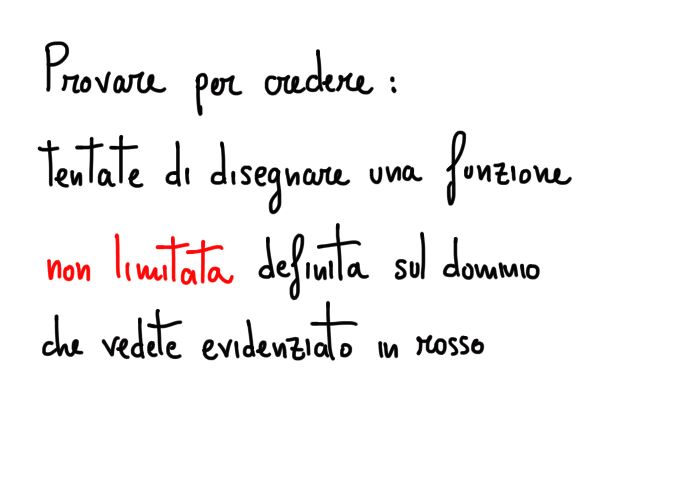 Provare per credere:
tentate di disegnare una funzione
non limitata definita sul dominio
che vedete evidenziato in rosso